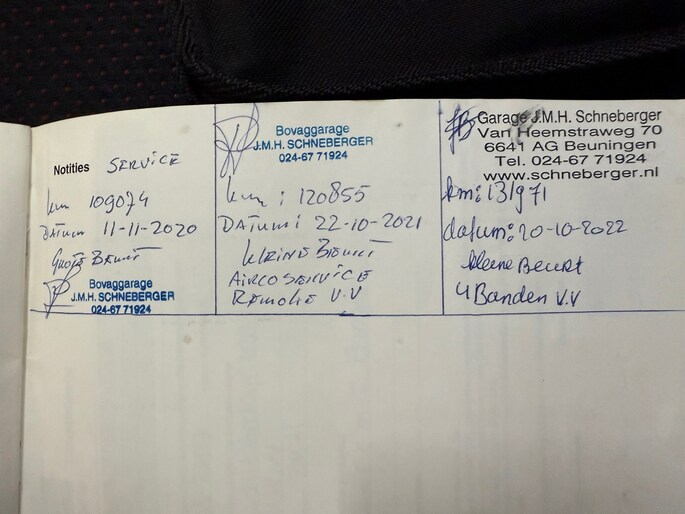 Notities SERVICE
km 109074
DATUM 11-11-2020
GROTE BEURT
Bovaggarage
J.M.H. SCHNEBERGER
024-67 71924
Bovaggarage
J.M.H. SCHNEBERGER
024-67 71924
km : 120855
DATUM: 22-10-2021
KLEINE BEURT
AIRCO SERVICE
V.V
Garage J.M.H. Schneberger
Van Heemstraweg 70
6641 AG Beuningen
Tel. 024-67 71924
www.schneberger.nl
km: 131971
datum: 20-10-2022
kleine Beurt
4 Banden V.V